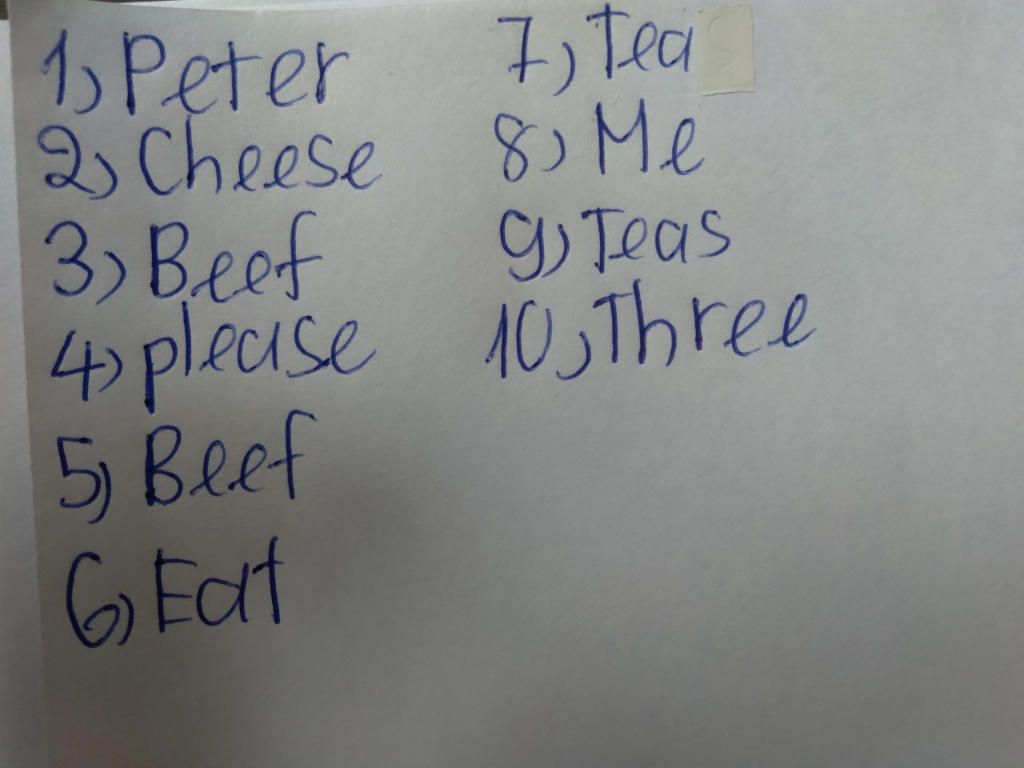 1, Peter
2, Cheese
3, Beef
4, please
5, Beef
6, Eat
7, Tea
8, Me
9, Teas
10, Three